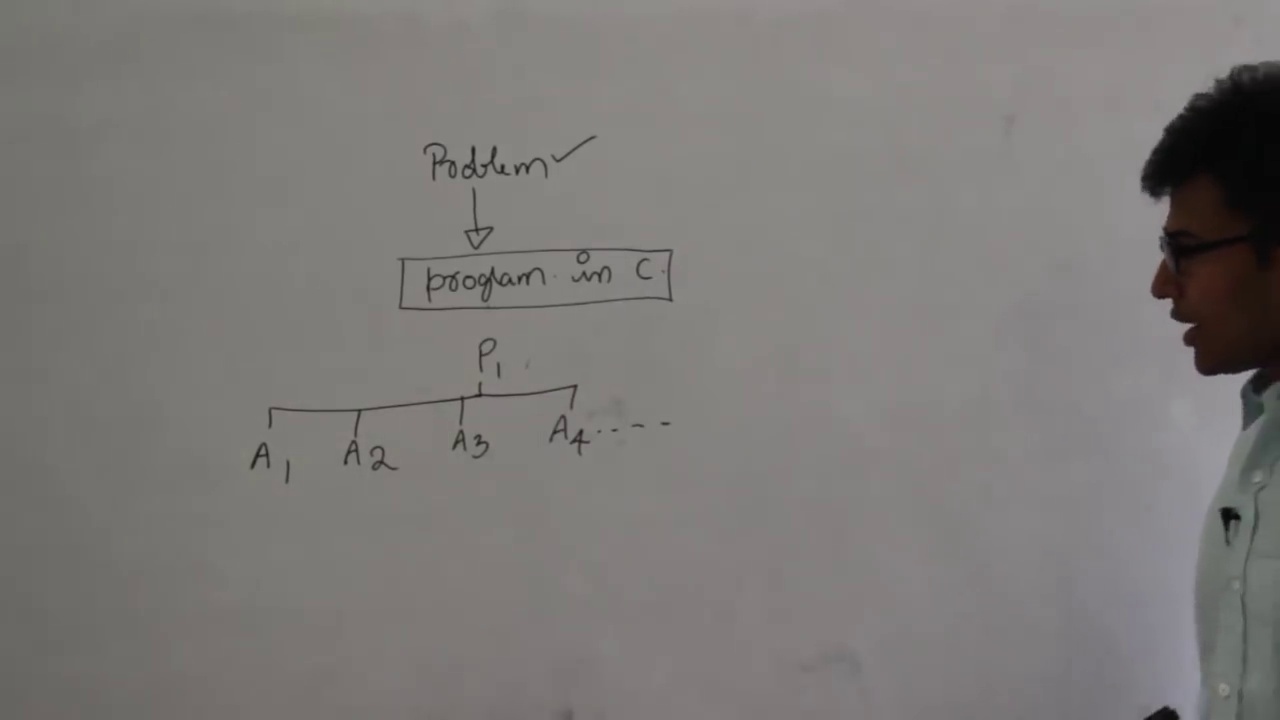 Problem ✓
program in C.
P1
A1 A2 A3 A4 ----